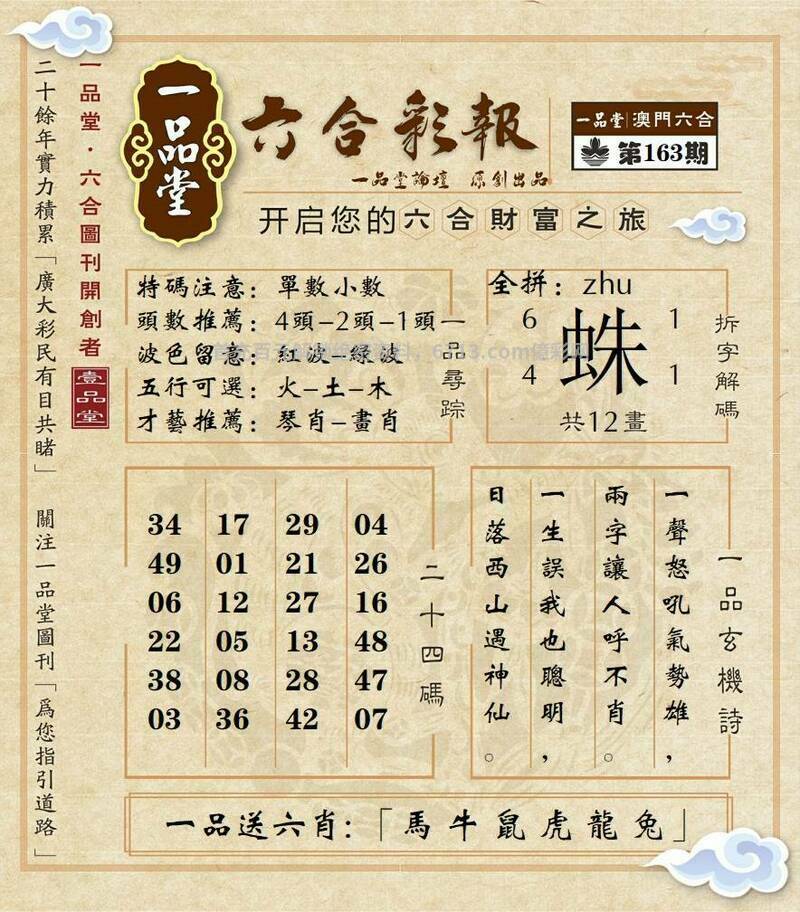 一品堂
六合彩報
一品堂論壇 原創出品
一品堂|澳門六合
第163期
开启您的六合財富之旅
一品堂·六合圖刊開創者
壹品堂
二十餘年實力積累「廣大彩民有目共睹」
關注一品堂圖刊「爲您指引道路」
特碼注意：單數小數
頭數推薦：4頭-2頭-1頭
波色留意：紅波-綠波
五行可選：火-土-木
才藝推薦：琴肖-畫肖
一品尋踪
全拼：zhu
6 蛛 1
4 1
共12畫
拆字解碼
34 17 29 04
49 01 21 26
06 12 27 16
22 05 13 48
38 08 28 47
03 36 42 07
二十四碼
一聲怒吼氣勢雄，
兩字讓人呼不肖。
一生誤我也聰明，
日落西山遇神仙。
一品玄機詩
一品送六肖：「馬牛鼠虎龍兔」